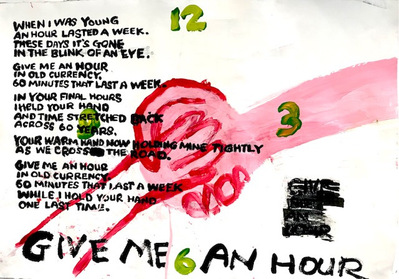 12
WHEN I WAS YOUNG
AN HOUR LASTED A WEEK.
THESE DAYS IT'S GONE
IN THE BLINK OF AN EYE.
GIVE ME AN HOUR
IN OLD CURRENCY,
60 MINUTES THAT LAST A WEEK.
IN YOUR FINAL HOURS
I HELD YOUR HAND
AND TIME STRETCHED BACK
ACROSS 60 YEARS.
9
3
YOUR WARM HAND NOW HOLDING MINE TIGHTLY
AS WE CROSS THE ROAD.
GIVE ME AN HOUR
IN OLD CURRENCY.
60 MINUTES THAT LAST A WEEK
WHILE I HOLD YOUR HAND
ONE LAST TIME.
GIVE
AN
HOUR
GIVE ME 6 AN HOUR